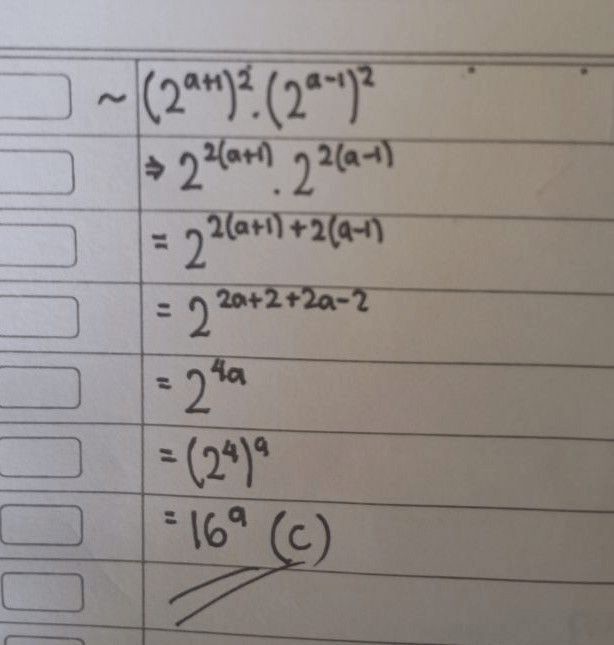 ~ (2^{a+1})^2 . (2^{a-1})^2
⇒ 2^{2(a+1)} . 2^{2(a-1)}
= 2^{2(a+1) + 2(a-1)}
= 2^{2a+2+2a-2}
= 2^{4a}
= (2^4)^a
= 16^a (C)